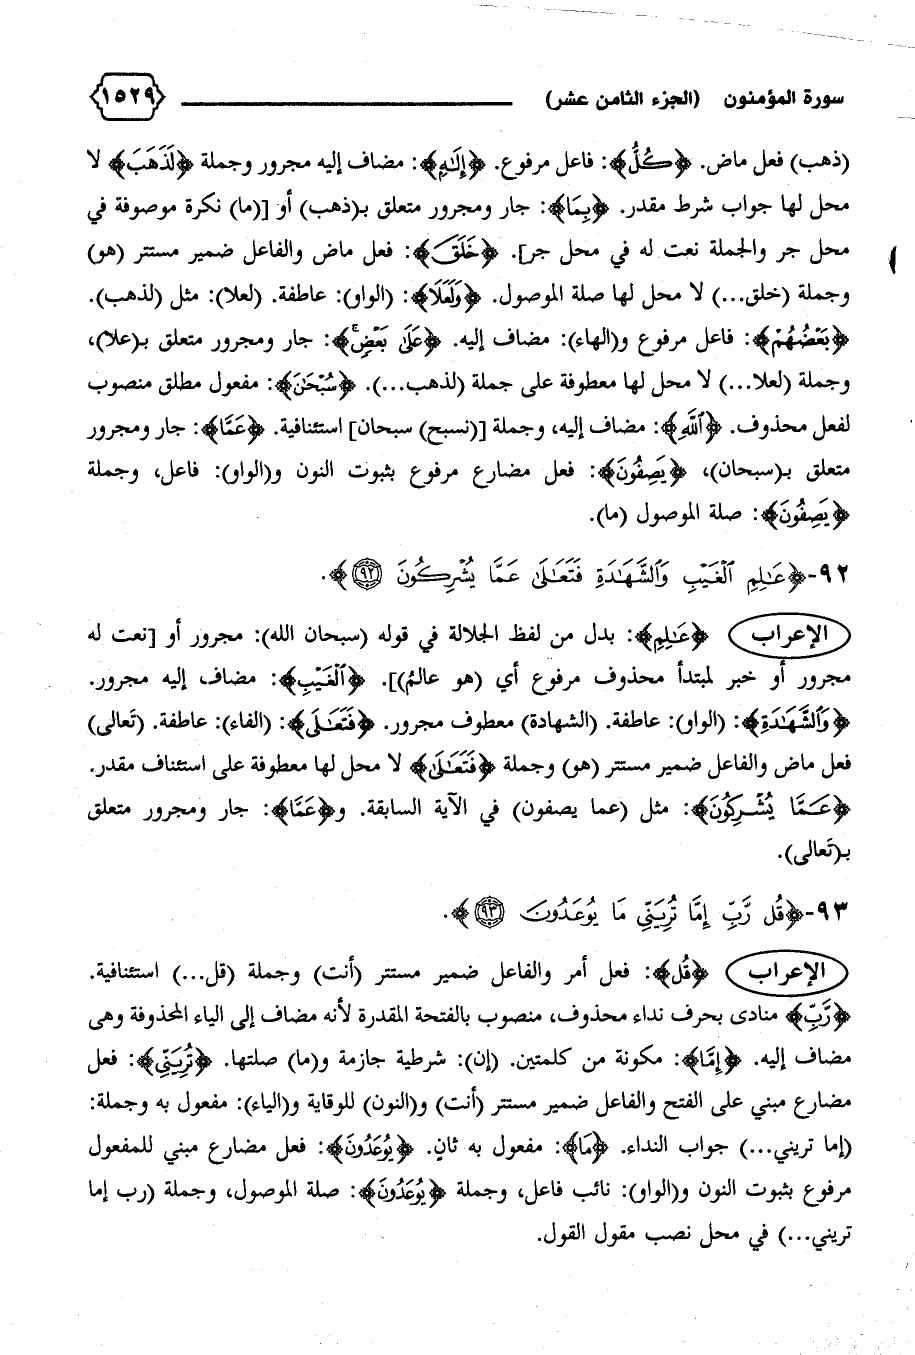 سورة المؤمنون (الجزء الثامن عشر) ١٥٢٩
(ذهب) فعل ماض. ﴿كُلُّ﴾: فاعل مرفوع. ﴿إِلَٰهٍ﴾: مضاف إليه مجرور وجملة ﴿لَذَهَبَ﴾ لا
محل لها جواب شرط مقدر. ﴿بِمَا﴾: جار ومجرور متعلق بـ(ذهب) أو [(ما) نكرة موصوفة في
محل جر والجملة نعت له في محل جر]. ﴿خَلَقَ﴾: فعل ماض والفاعل ضمير مستتر (هو)
وجملة (خلق...) لا محل لها صلة الموصول. ﴿وَلَعَلَا﴾: (الواو): عاطفة. (لعلا): مثل (لذهب).
﴿بَعْضُهُمْ﴾: فاعل مرفوع و(الهاء): مضاف إليه. ﴿عَلَىٰ بَعْضٍ ۚ﴾: جار ومجرور متعلق بـ(علا)،
وجملة (لعلا...) لا محل لها معطوفة على جملة (لذهب...). ﴿سُبْحَٰنَ﴾: مفعول مطلق منصوب
لفعل محذوف. ﴿ٱللَّهِ﴾: مضاف إليه، وجملة [(نسبح) سبحان] استئنافية. ﴿عَمَّا﴾: جار ومجرور
متعلق بـ(سبحان)، ﴿يَصِفُونَ﴾: فعل مضارع مرفوع بثبوت النون و(الواو): فاعل، وجملة
﴿يَصِفُونَ﴾: صلة الموصول (ما).
٩٢-﴿عَٰلِمِ ٱلْغَيْبِ وَٱلشَّهَٰدَةِ فَتَعَٰلَىٰ عَمَّا يُشْرِكُونَ ٩٢﴾.
الإعراب ﴿عَٰلِمِ﴾: بدل من لفظ الجلالة في قوله (سبحان الله): مجرور أو [نعت له
مجرور أو خبر لمبتدأ محذوف مرفوع أي (هو عالمُ)]. ﴿ٱلْغَيْبِ﴾: مضاف إليه مجرور.
﴿وَٱلشَّهَٰدَةِ﴾: (الواو): عاطفة. (الشهادة) معطوف مجرور. ﴿فَتَعَٰلَىٰ﴾: (الفاء): عاطفة. (تَعالى)
فعل ماض والفاعل ضمير مستتر (هو) وجملة ﴿فَتَعَٰلَىٰ﴾ لا محل لها معطوفة على استئناف مقدر.
﴿عَمَّا يُشْرِكُونَ﴾: مثل (عما يصفون) في الآية السابقة. و﴿عَمَّا﴾: جار ومجرور متعلق
بـ(تَعالى).
٩٣-﴿قُل رَّبِّ إِمَّا تُرِيَنِّي مَا يُوعَدُونَ ٩٣﴾.
الإعراب ﴿قُل﴾: فعل أمر والفاعل ضمير مستتر (أنت) وجملة (قل...) استئنافية.
﴿رَّبِّ﴾ منادى بحرف نداء محذوف، منصوب بالفتحة المقدرة لأنه مضاف إلى الياء المحذوفة وهى
مضاف إليه. ﴿إِمَّا﴾: مكونة من كلمتين. (إن): شرطية جازمة و(ما) صلتها. ﴿تُرِيَنِّي﴾: فعل
مضارع مبني على الفتح والفاعل ضمير مستتر (أنت) و(النون) للوقاية و(الياء): مفعول به وجملة:
(إما تريني...) جواب النداء. ﴿مَا﴾: مفعول به ثانٍ. ﴿يُوعَدُونَ﴾: فعل مضارع مبني للمفعول
مرفوع بثبوت النون و(الواو): نائب فاعل، وجملة ﴿يُوعَدُونَ﴾: صلة الموصول، وجملة (رب إما
تريني...) في محل نصب مقول القول.